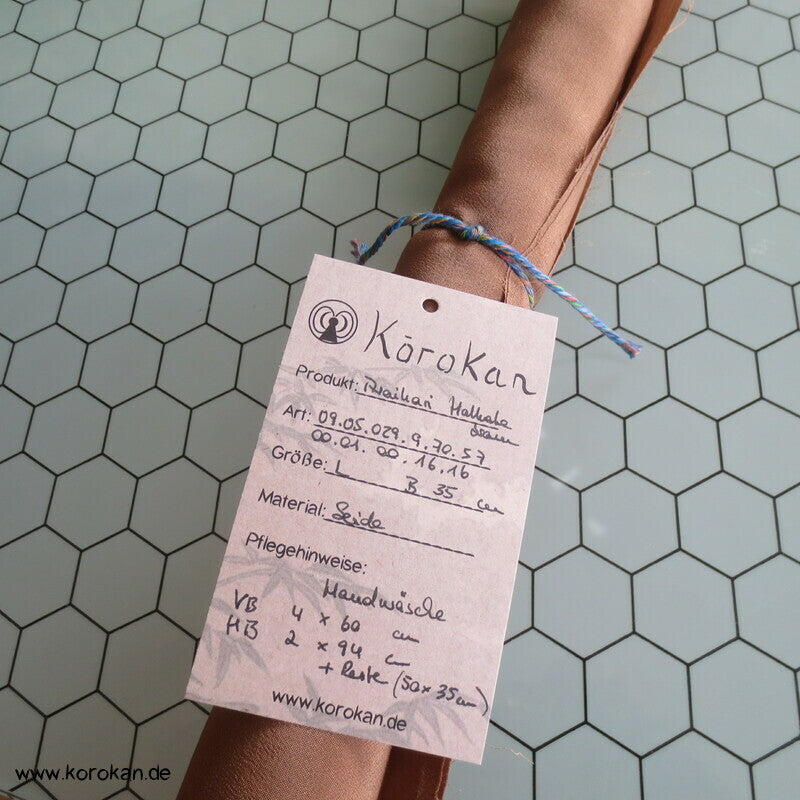 Kōrokan
Produkt: Hakkake
braun
Art: 09.05.029.9.70.57
00.01.00.16.16
Größe: L B 35 cm
Material: Seide
Pflegehinweise:
Handwäsche
VB 4 x 60 cm
HB 2 x 94 cm
+ Reste (50x35cm)
www.korokan.de
www.korokan.de